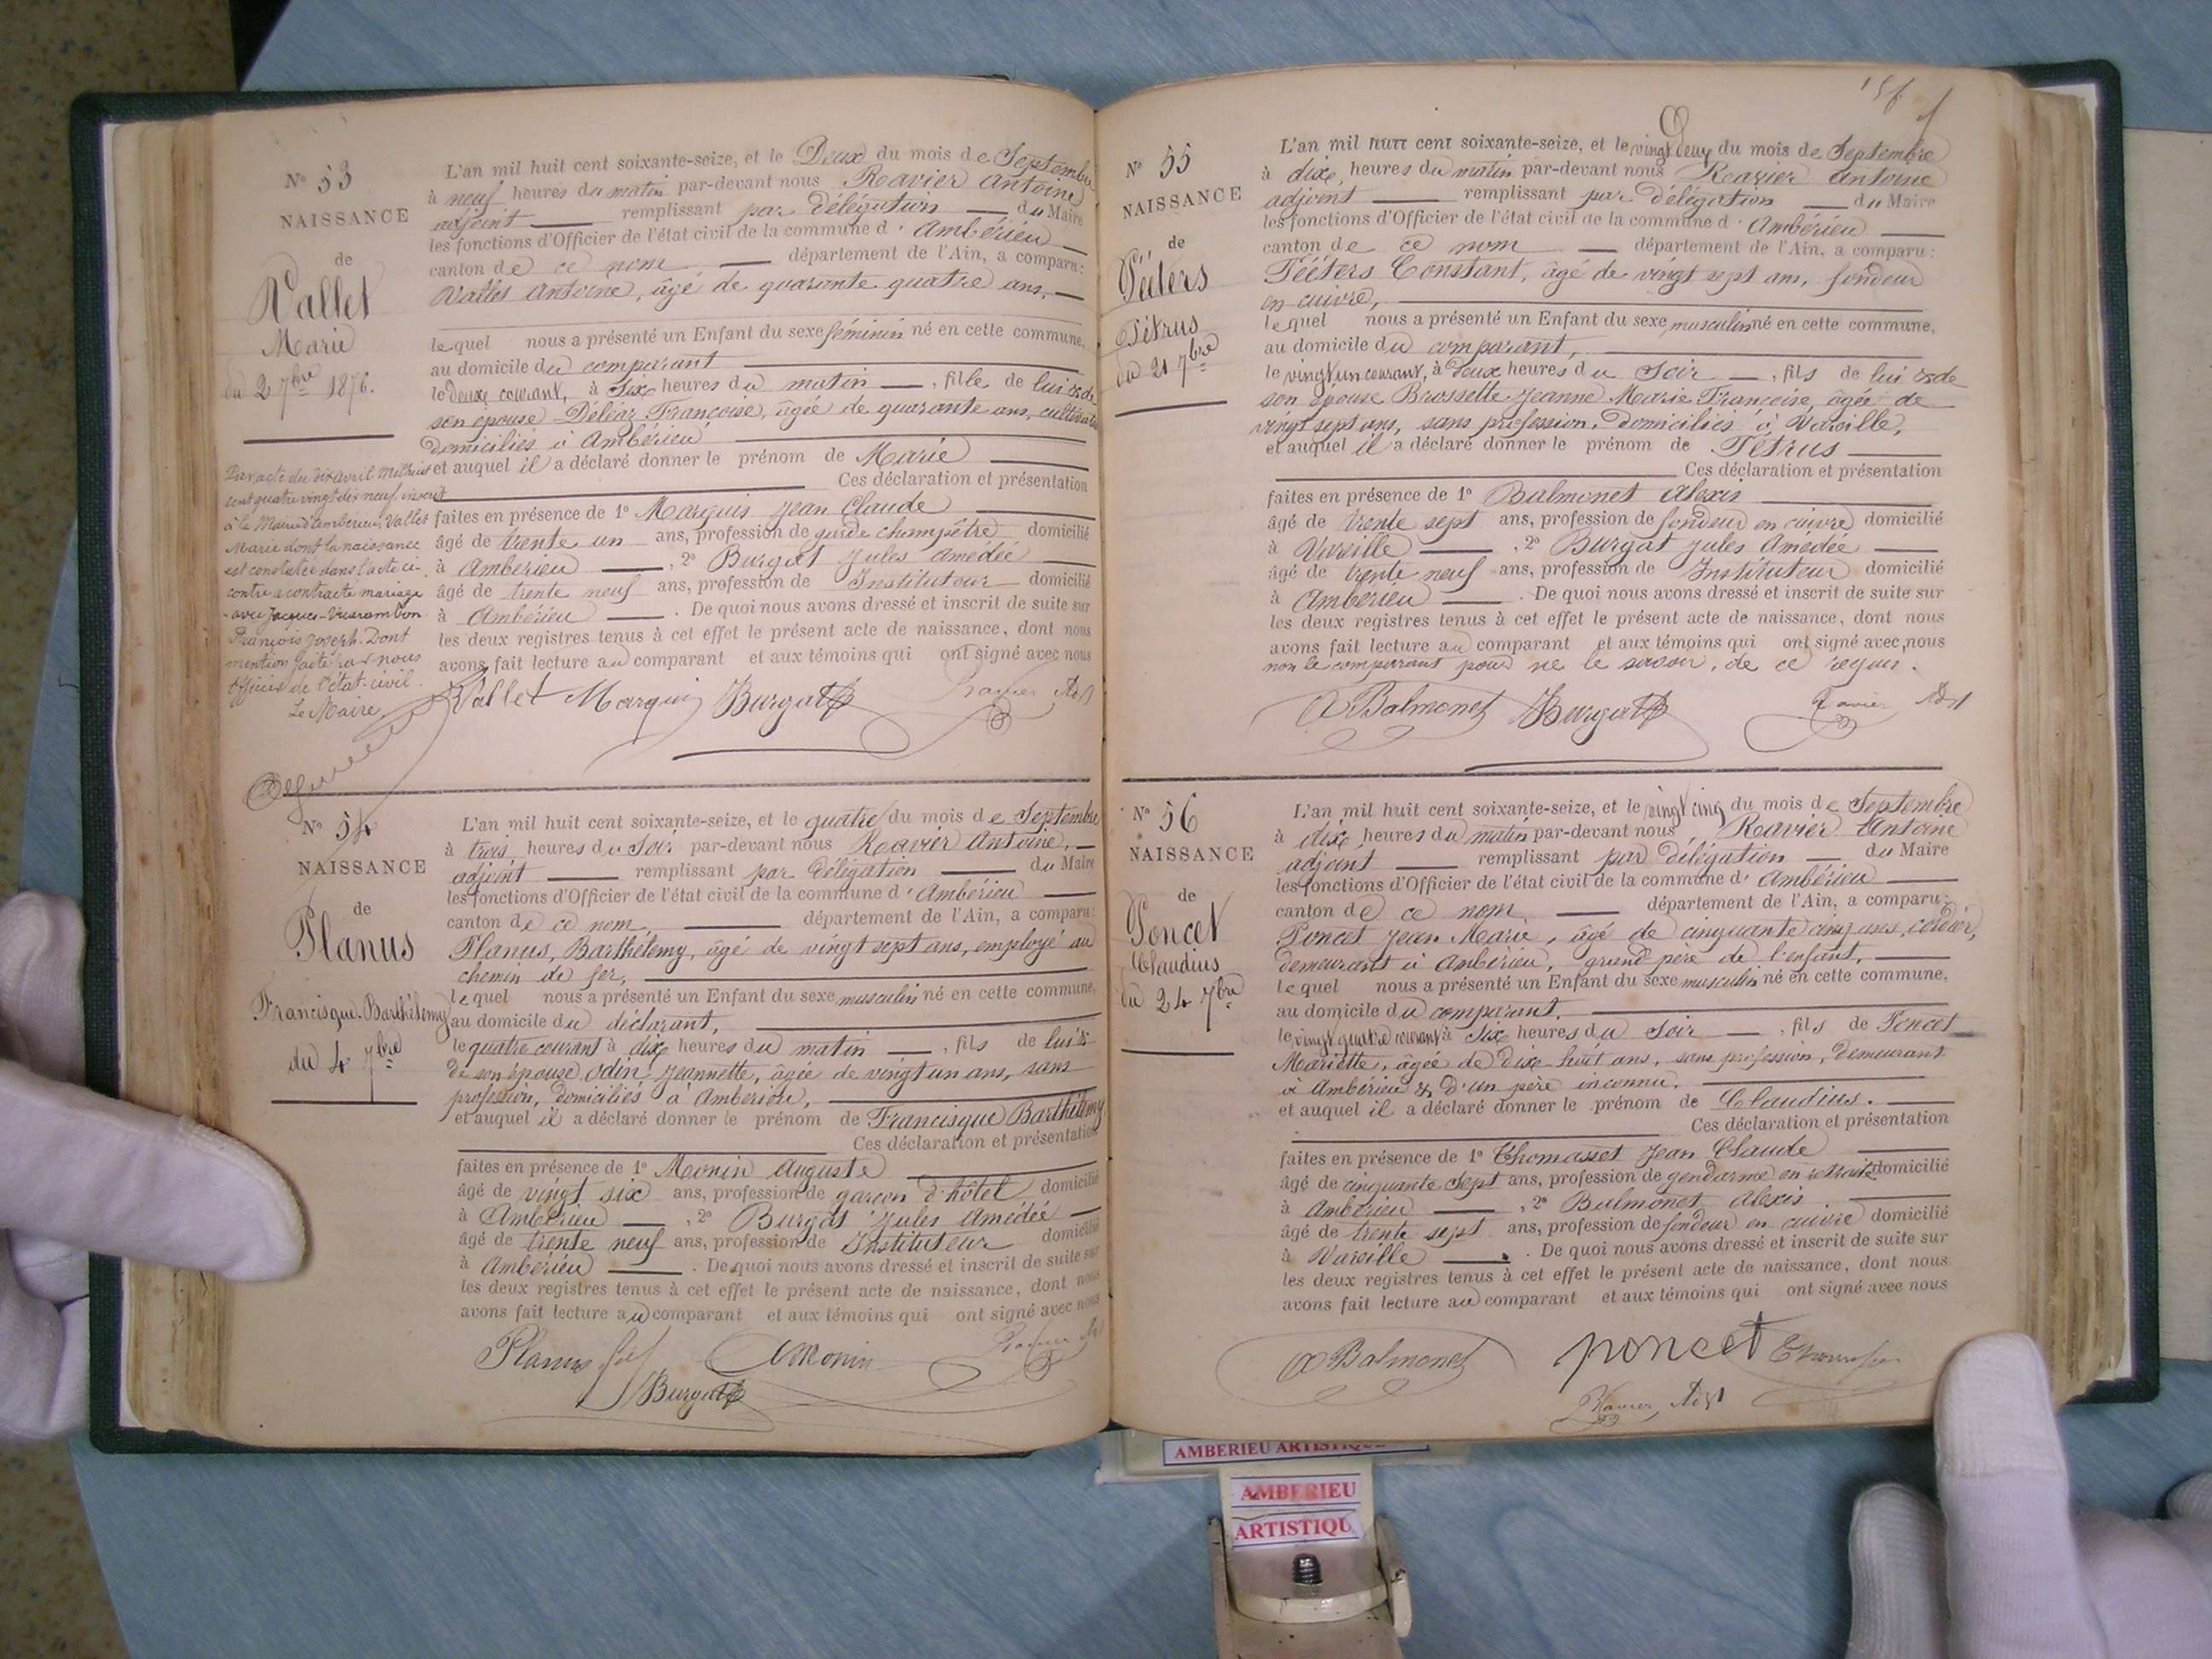 N° 53
NAISSANCE
de
Vallet
Marie
du 2 7bre 1876.
L'an mil huit cent soixante-seize, et le Deux du mois de Septembre
à neuf heures du matin par-devant nous Ravier Antoine
adjoint remplissant par délégation du Maire
les fonctions d'Officier de l'état civil de la commune d'Ambérieu
canton de ce nom département de l'Ain, a comparu:
Vallet Antoine, âgé de quarante quatre ans,
lequel nous a présenté un Enfant du sexe féminin né en cette commune,
au domicile du comparant
le deux courant, à Six heures du matin, fille de lui & de
son épouse Françoise, âgée de quarante ans, cultivateurs
domiciliés à Ambérieu
et auquel il a déclaré donner le prénom de Marie
Ces déclaration et présentation
faites en présence de 1° Marquis Jean Claude
âgé de trente un ans, profession de garde champêtre domicilié
à Ambérieu, 2° Burgat Jules Amédée
âgé de trente neuf ans, profession de Instituteur domicilié
à Ambérieu. De quoi nous avons dressé et inscrit de suite sur
les deux registres tenus à cet effet le présent acte de naissance, dont nous
avons fait lecture au comparant et aux témoins qui ont signé avec nous
Vallet Marquis Burgat Ravier Adjt
Par acte du dix avril mil huit
cent quatre vingt dix neuf, inscrit
à la Mairie d'Ambérieu, Vallet
Marie dont la naissance
est constatée dans l'acte ci-
contre a contracté mariage
avec Jacques-Vuarambon
François Joseph. Dont
mention faite par nous
Officier de l'état-civil.
Le Maire,
N° 54
NAISSANCE
de
Planus
Francisque-Barthélemy
du 4 7bre
L'an mil huit cent soixante-seize, et le quatre du mois de Septembre
à trois heures du Soir par-devant nous Ravier Antoine,
adjoint remplissant par délégation du Maire
les fonctions d'Officier de l'état civil de la commune d'Ambérieu
canton de ce nom, département de l'Ain, a comparu:
Planus, Barthélemy, âgé de vingt sept ans, employé au
chemin de fer,
lequel nous a présenté un Enfant du sexe masculin né en cette commune,
au domicile du déclarant,
le quatre courant à dix heures du matin, fils de lui &
de son épouse Odin Jeannette, âgée de vingt un ans, sans
profession, domiciliés à Ambérieu,
et auquel il a déclaré donner le prénom de Francisque Barthélemy
Ces déclaration et présentation
faites en présence de 1° Monin Auguste
âgé de vingt six ans, profession de garçon d'hôtel domicilié
à Ambérieu, 2° Burgat Jules Amédée
âgé de trente neuf ans, profession de Instituteur domicilié
à Ambérieu. De quoi nous avons dressé et inscrit de suite sur
les deux registres tenus à cet effet le présent acte de naissance, dont nous
avons fait lecture au comparant et aux témoins qui ont signé avec nous
Planus Monin Ravier Adjt
Burgat
N° 55
NAISSANCE
de
Pééters
Pétrus
du 21 7bre
L'an mil huit cent soixante-seize, et le vingt deux du mois de Septembre
à dix heures du matin par-devant nous Ravier Antoine
adjoint remplissant par délégation du Maire
les fonctions d'Officier de l'état civil de la commune d'Ambérieu
canton de ce nom département de l'Ain, a comparu:
Pééters Constant, âgé de vingt sept ans, fondeur
en cuivre,
lequel nous a présenté un Enfant du sexe masculin né en cette commune,
au domicile du comparant,
le vingt un courant, à deux heures du Soir, fils de lui & de
son épouse Brossette Jeanne Marie Françoise, âgée de
vingt sept ans, sans profession, domiciliés à Vareille,
et auquel il a déclaré donner le prénom de Pétrus
Ces déclaration et présentation
faites en présence de 1° Balmonet Alexis
âgé de trente sept ans, profession de fondeur en cuivre domicilié
à Vareille, 2° Burgat Jules Amédée
âgé de trente neuf ans, profession de Instituteur domicilié
à Ambérieu. De quoi nous avons dressé et inscrit de suite sur
les deux registres tenus à cet effet le présent acte de naissance, dont nous
avons fait lecture au comparant et aux témoins qui ont signé avec nous
non le comparant pour ne le savoir, de ce requis.
A Balmonet Burgat Ravier Adjt
N° 56
NAISSANCE
de
Poncet
Claudius
du 24 7bre
L'an mil huit cent soixante-seize, et le vingt cinq du mois de Septembre
à dix heures du matin par-devant nous, Ravier Antoine
adjoint remplissant par délégation du Maire
les fonctions d'Officier de l'état civil de la commune d'Ambérieu
canton de ce nom, département de l'Ain, a comparu:
Poncet Jean Marie, âgé de cinquante cinq ans,
demeurant à Ambérieu, grand père de l'enfant,
lequel nous a présenté un Enfant du sexe masculin né en cette commune,
au domicile du comparant.
le vingt quatre courant à Six heures du Soir, fils de Poncet
Mariette, âgée de dix-huit ans, sans profession, demeurant
à Ambérieu & d'un père inconnu.
et auquel il a déclaré donner le prénom de Claudius.
Ces déclaration et présentation
faites en présence de 1° Thomasset Jean Claude
âgé de cinquante Sept ans, profession de gendarme en retraite domicilié
à Ambérieu, 2° Balmonet Alexis
âgé de trente sept ans, profession de fondeur en cuivre domicilié
à Vareille. De quoi nous avons dressé et inscrit de suite sur
les deux registres tenus à cet effet le présent acte de naissance, dont nous
avons fait lecture au comparant et aux témoins qui ont signé avec nous
A Balmonet poncet Thomasset
Ravier, Adjt
AMBERIEU ARTISTIQUE
AMBERIEU
ARTISTIQU